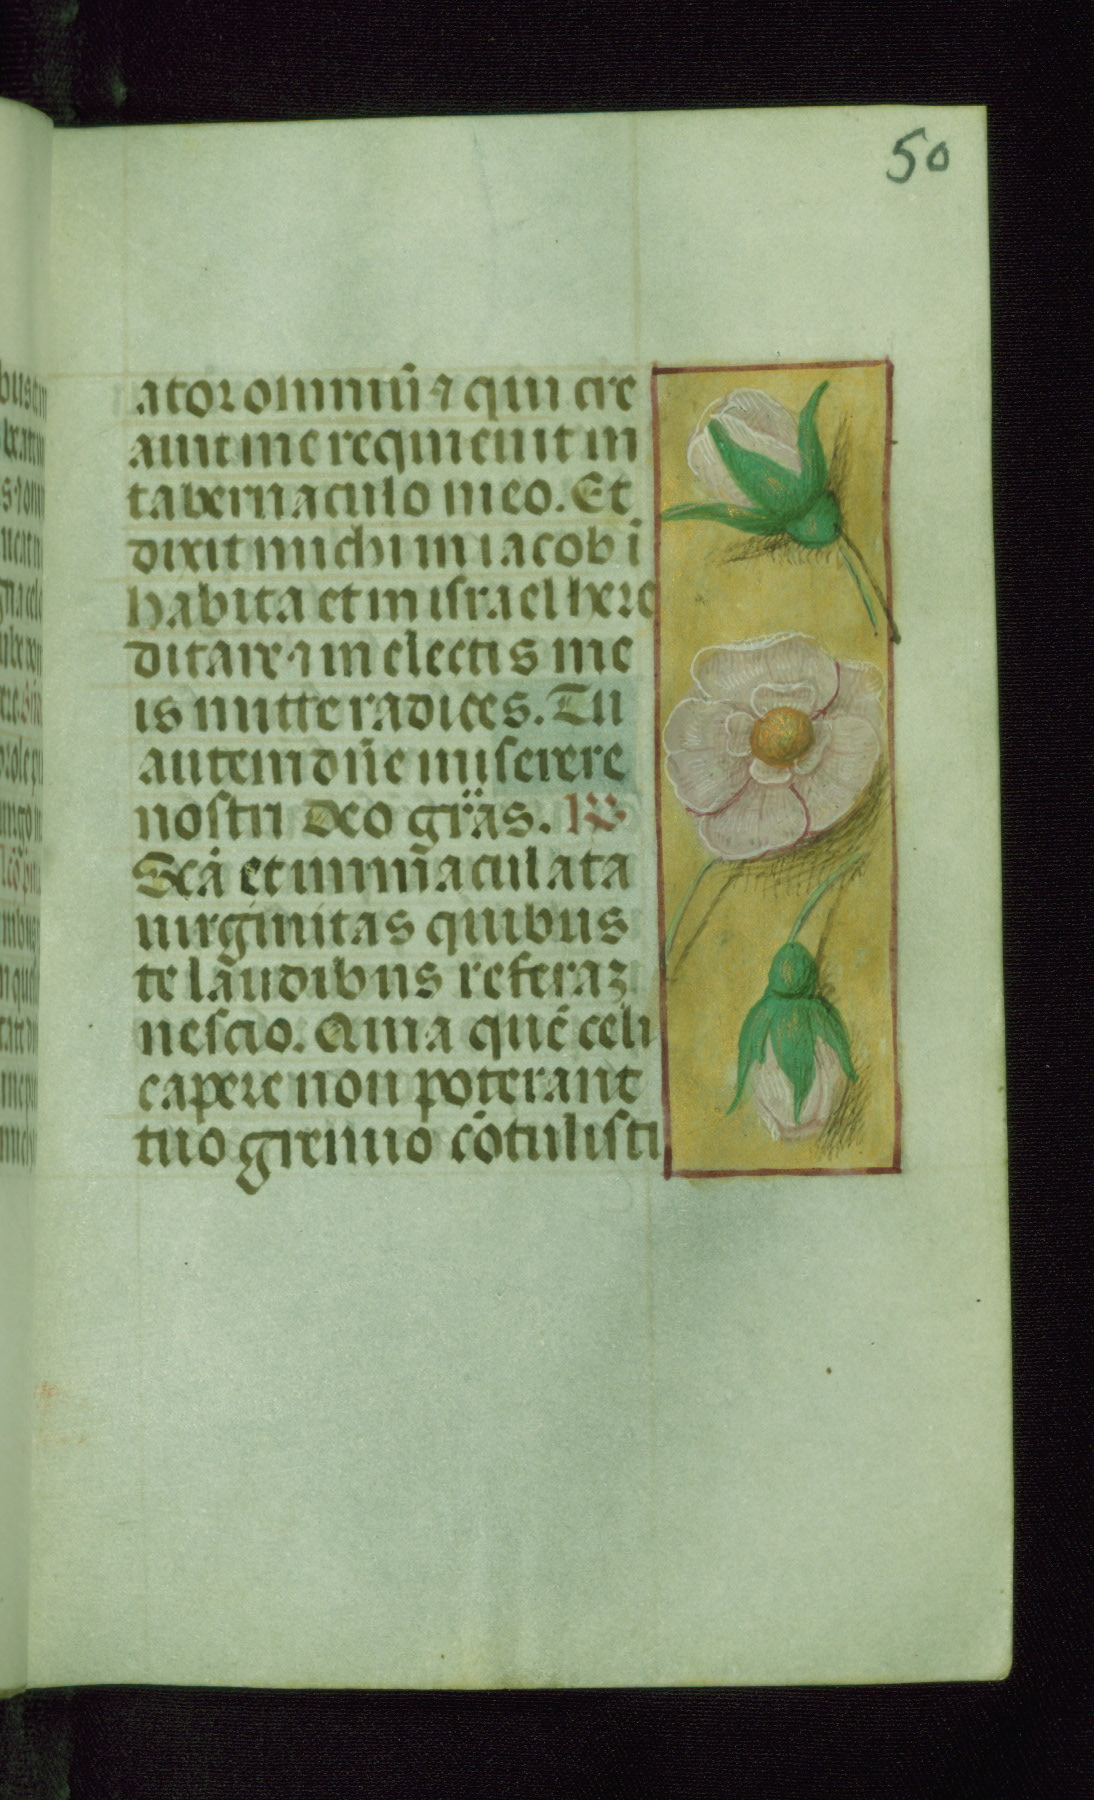 50
ator omniū ⁊ qui cre
auit me requieuit in
tabernaculo meo. Et
dixit michi in iacob i
habita et in israel here
ditare ⁊ in electis me
is mitte radices. Tu
autem dn̄e miserere
nostri Deo gr̄as.
Scā et inm̄aculata
uirginitas quibus
te laudibus referaʒ
nescio. Quia quē celi
capere non poterant
tuo gremio cōtulisti